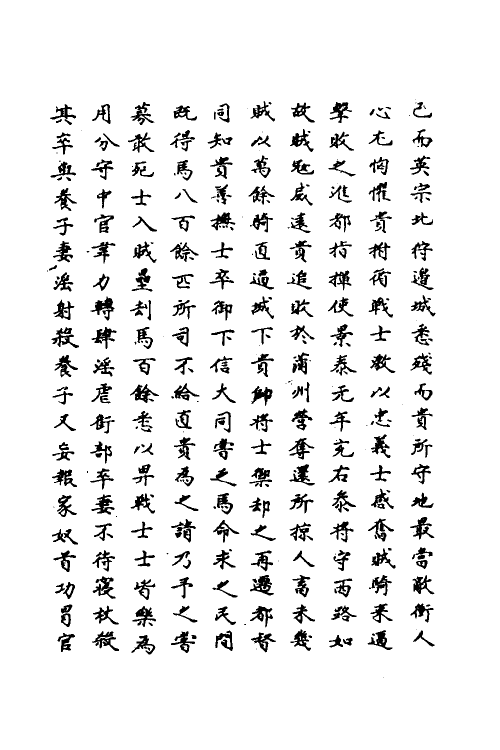 已而英宗北狩邊城悉殘而貴所守地最當敵衝人
心尤恟懼貴拊循戰士激以忠義士感奮賊騎来逼
擊敗之進都指揮使景泰元年充右叅将守西路如
故賊寇威逺貴追敗於蒲州營奪還所掠人畜未幾
賊以萬餘騎直逼城下貴帥将士禦却之再遷都督
同知貴善撫士卒御下信大同嘗乏馬命求之民間
既得馬八百餘匹所司不給直貴為之請乃予之嘗
募敢死士入賊壘刦馬百餘悉以畀戰士士皆樂為
用分守中官韋力轉肆淫虐銜部卒妻不待寢杖殺
其卒與養子妻淫射殺養子又妄報家奴首功冒官